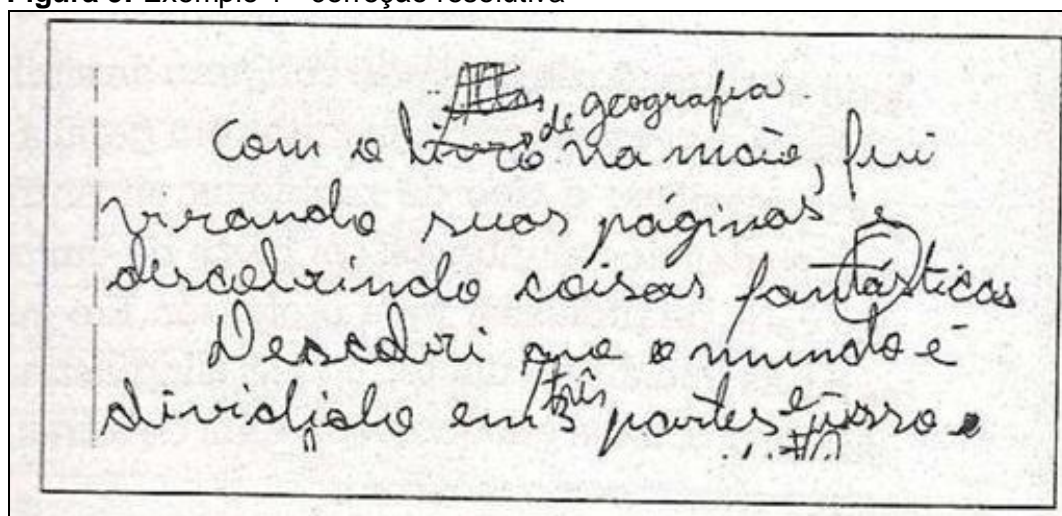 Exemplo 1 - correção resolutiva
de geografia
Com o livro na mão, fui
virando suas páginas e
descobrindo coisas fantásticas
Descobri que o mundo é
dividido em 3 três partes e isso e